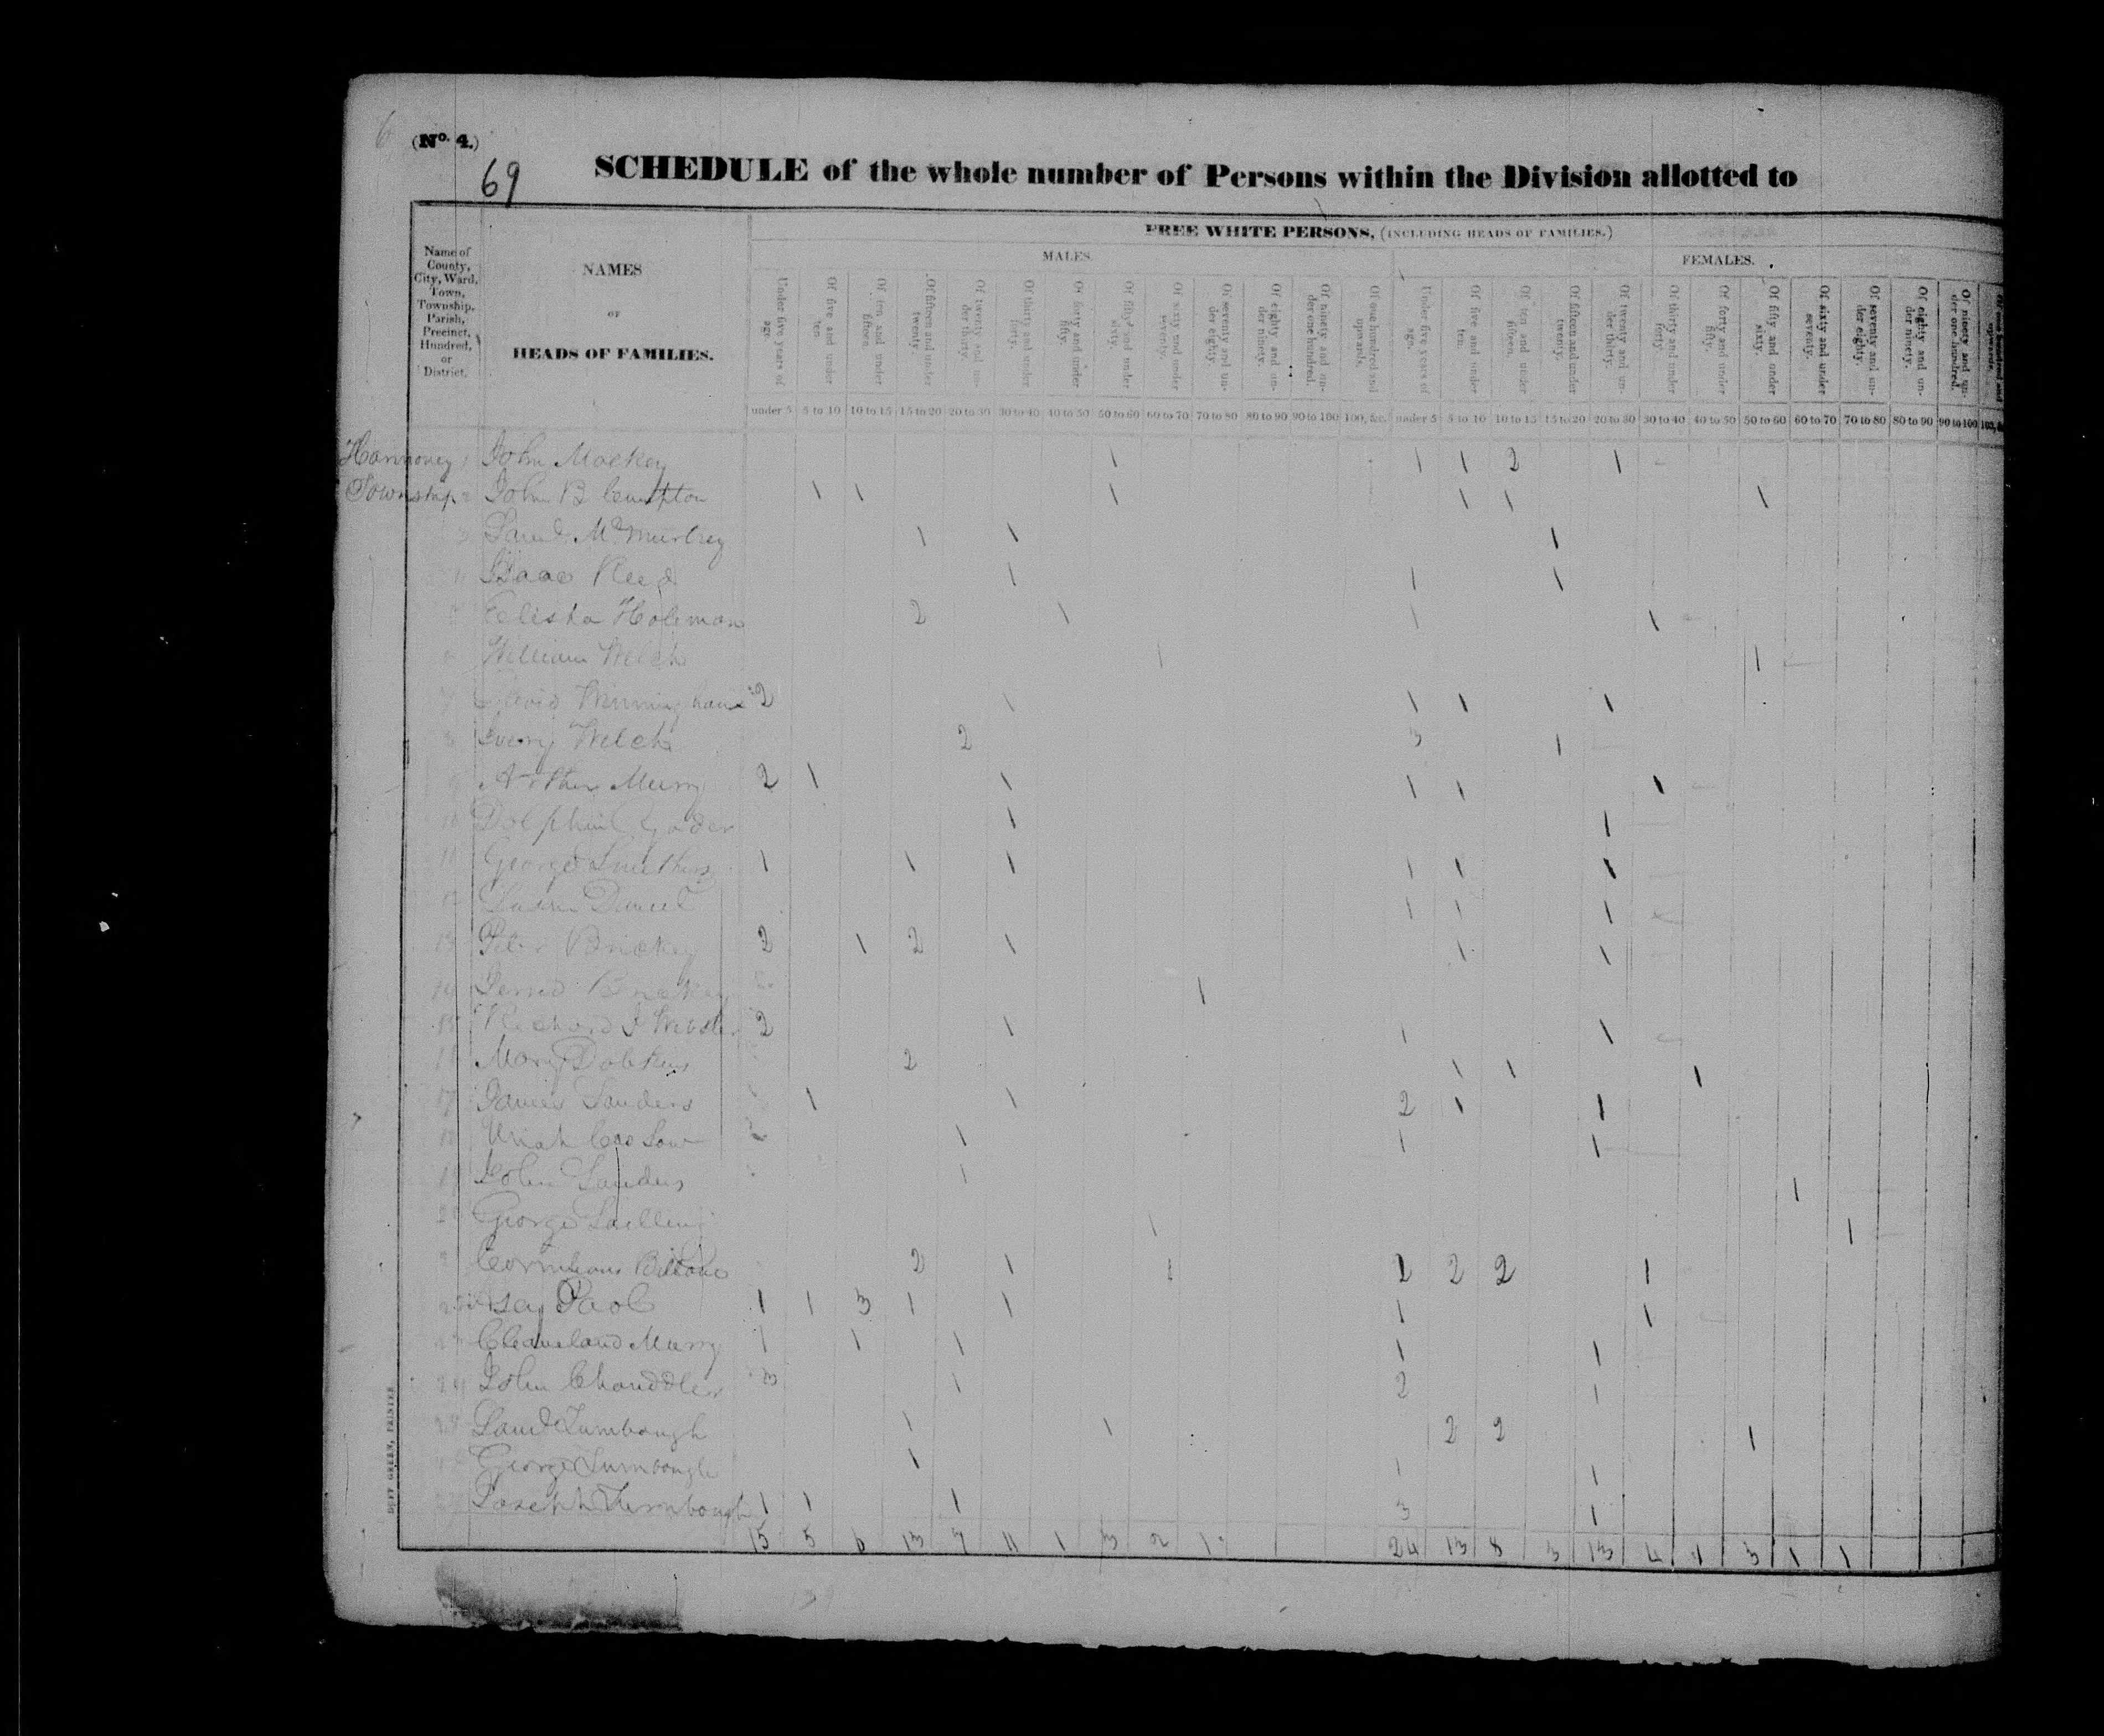 (No. 4.)
69
SCHEDULE of the whole number of Persons within the Division allotted to
Name of County, City, Ward, Town, Township, Parish, Precinct, Hundred, or District.
NAMES
OF
HEADS OF FAMILIES.
FREE WHITE PERSONS, (INCLUDING HEADS OF FAMILIES.)
MALES.
FEMALES.
Under five years of age. Of five and under ten. Of ten and under fifteen. Of fifteen and under twenty. Of twenty and under thirty. Of thirty and under forty. Of forty and under fifty. Of fifty and under sixty. Of sixty and under seventy. Of seventy and under eighty. Of eighty and under ninety. Of ninety and under one hundred. Of one hundred and upwards. Under five years of age. Of five and under ten. Of ten and under fifteen. Of fifteen and under twenty. Of twenty and under thirty. Of thirty and under forty. Of forty and under fifty. Of fifty and under sixty. Of sixty and under seventy. Of seventy and under eighty. Of eighty and under ninety. Of ninety and under one hundred. Of one hundred and upwards.
under 5 5 to 10 10 to 15 15 to 20 20 to 30 30 to 40 40 to 50 50 to 60 60 to 70 70 to 80 80 to 90 90 to 100 100, &c. under 5 5 to 10 10 to 15 15 to 20 20 to 30 30 to 40 40 to 50 50 to 60 60 to 70 70 to 80 80 to 90 90 to 100
1 John Mackey 1 1 1 2 1
Township 2 John B 1 1 1 1 1 1
McMurtrey 1 1 1
Isaac Reed 1 1 1
Elisha Holeman 2 1 1 1
William Welch 1 1
David 2 1 1 1 1
8 Welch 2 3 1
9 Arther Murry 2 1 1 1 1 1
10 Dolphin Yoder 1 1
11 George Smithers 1 1 1 1 1 1
12 Daniel 1 1 1
13 Peter Brickey 2 1 2 1 1 1
14 Brickey 1
15 Richard J Webster 2 1 1 1
Mary Dobkins 2 1 1 1
17 James Sanders 1 1 2 1 1
Uriah 1 1 1
19 John Sanders 1 1
George 1 1
2 1 2 2 1
1 1 3 1 1 1 1
Cleaveland Murry 1 1 1 1 1
24 John Chanddler 3 1 2 1
Turnbough 1 1 2 2 1
George Turnbough 1 1 1
Joseph Turnbough 1 1 1 3 1
15 5 6 13 7 11 1 3 2 1 24 13 8 3 13 4 1 3 1 1
DUFF GREEN, PRINTER